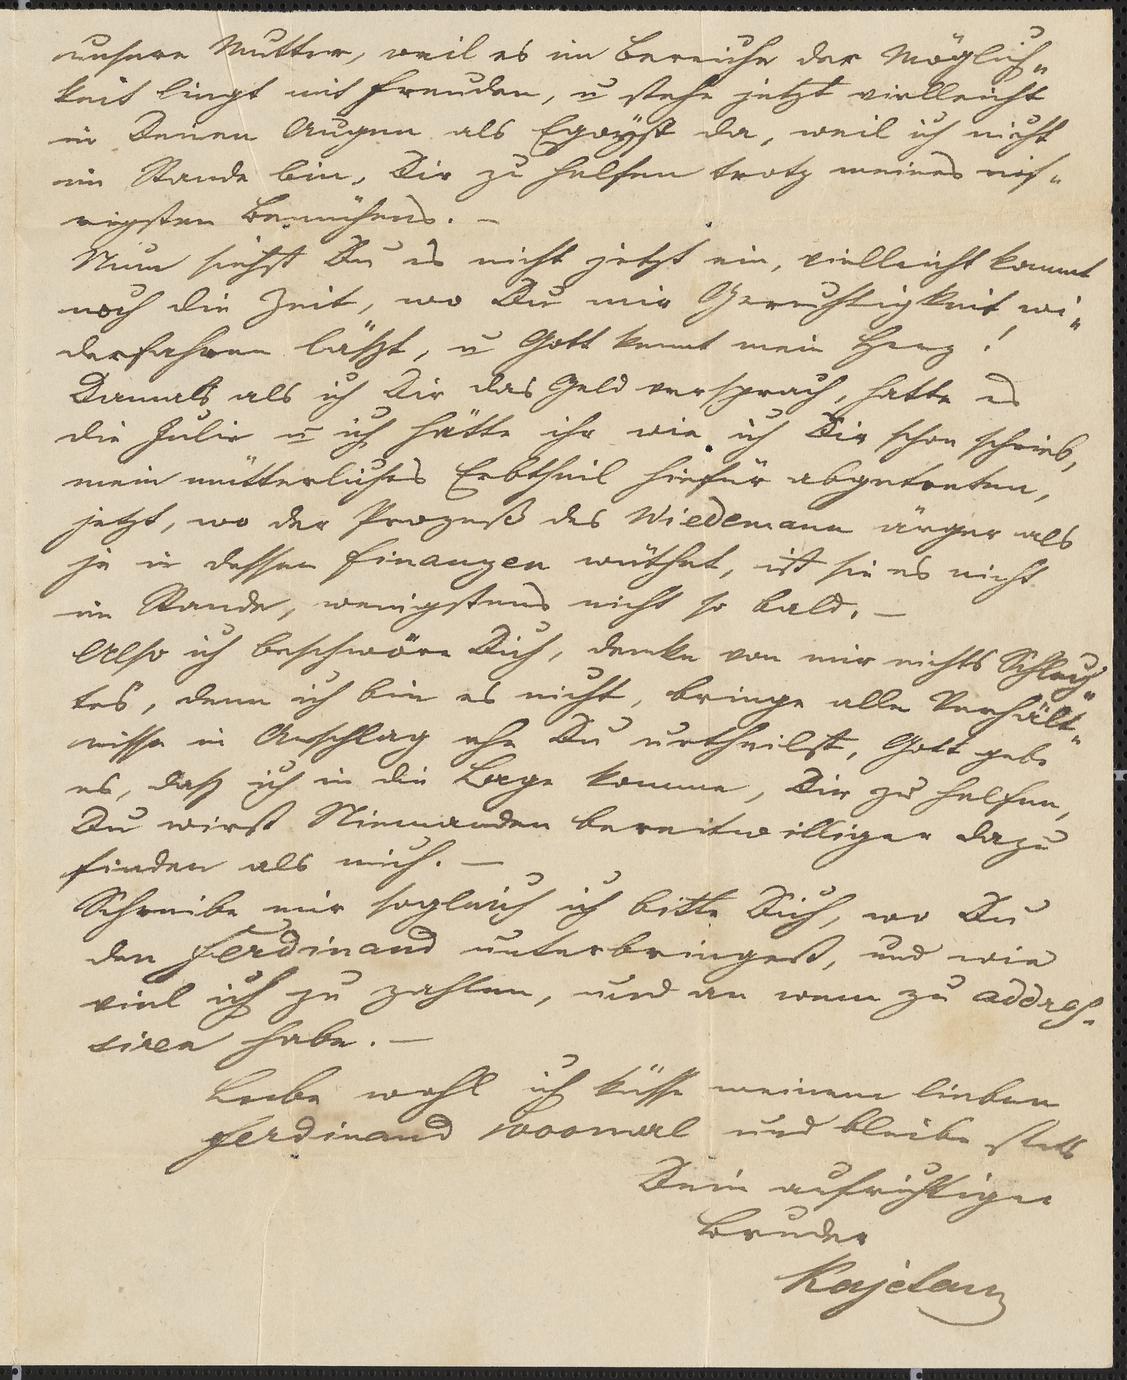 unsere Mutter, weil es im Bereiche der Möglich„
keit liegt mit Freuden, u stehe jetzt vielleicht
in Deinen Augen als Egoyst da, weil ich nicht
im Stande bin, Dir zu helfen trotz meines eif„
rigsten Bemühens. –
Nun siehst Du es nicht jetzt ein, vielleicht kommt
noch die Zeit, wo Du mir Gerechtigkeit wi„
derfahren läßt, u Gott kennt mein Herz!
Damals als ich Dir das Geld versprach, hatte es
die Julie u ich hätte ihr wie ich Dir schon schrieb,
mein mütterliches Erbtheil hiefür abgetreten,
jetzt, wo der Prozeß des Wiedemann ärger als
je in dessen Finanzen wüthet, ist sie es nicht
im Stande, wenigstens nicht so bald. –
Also ich beschwöre Dich, denke von mir nichts Schlech„
tes, denn ich bin es nicht, bringe alle Verhält„
nisse in Anschlag ehe Du urtheilst, Gott gebe
es, daß ich in die Lage komme, Dir zu helfen,
Du wirst Niemanden bereitwilliger dazu
finden als mich. –
Schreibe mir sogleich ich bitte Dich, wo Du
den Ferdinand unterbringest, und wie
viel ich zu zahlen, und an wem zu addres„
siren habe. –
Lebe wohl ich küsse meinem lieben
Ferdinand 1000mal und bleibe stets
Dein aufrichtiger
Bruder
Kajetan